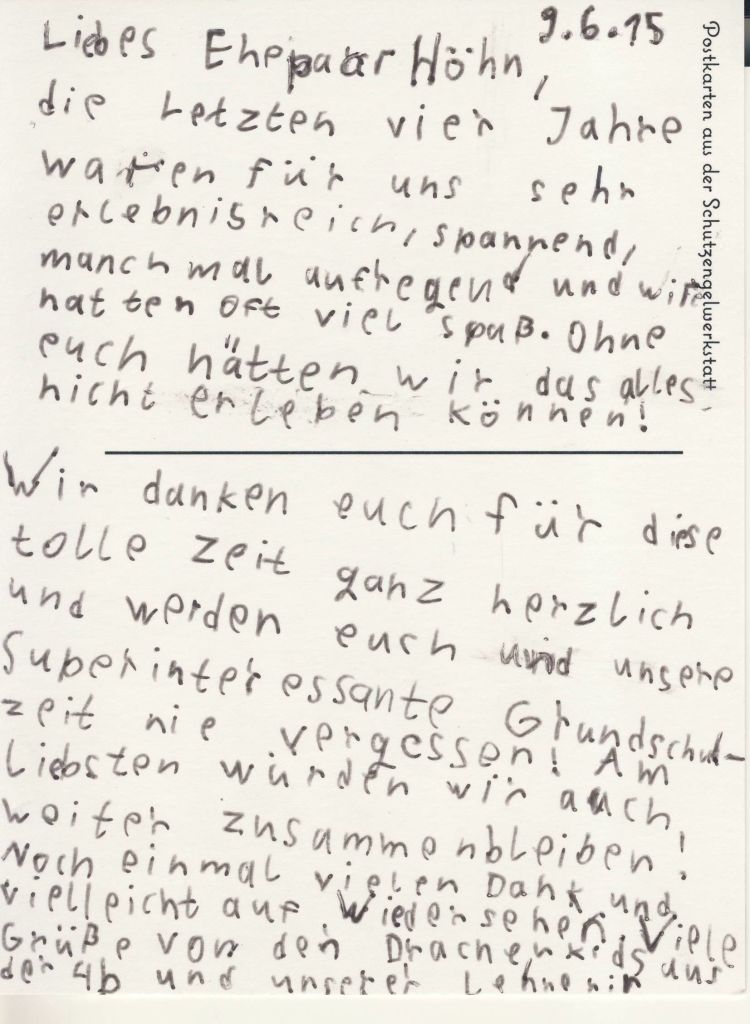 9.6.15
Liebes Ehepaar Höhn,
die letzten vier Jahre
waren für uns sehr
erlebnisreich, spannend,
manchmal aufregend und wir
hatten oft viel spaß. Ohne
euch hätten wir das alles
nicht erleben können!
Wir danken euch für diese
tolle Zeit ganz herzlich
und werden euch und unsere
Superinteressante Grundschul-
zeit nie vergessen! Am
Liebsten würden wir auch
weiter zusammenbleiben!
Noch einmal vielen Dank und
vielleicht auf Wiedersehen. Viele
Grüße von den Drachenkids aus
der 4b und unserer Lehrerin
Postkarten aus der Schutzengelwerkstatt